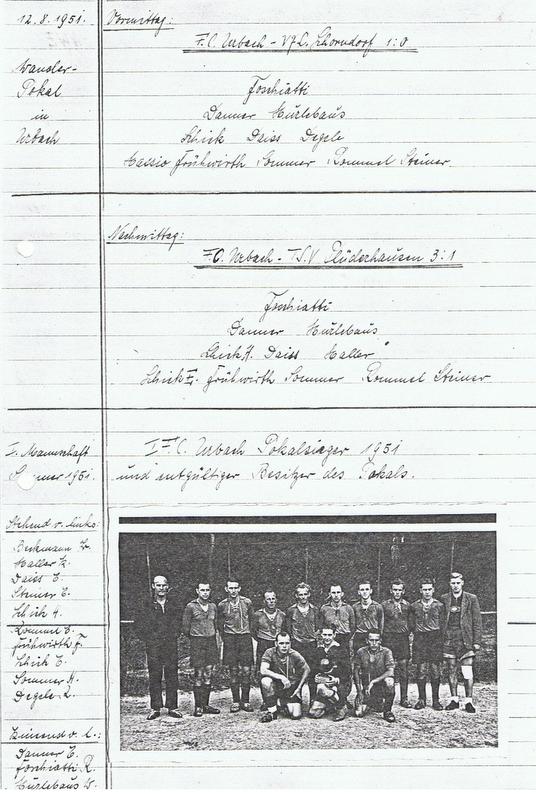 12.8.1951.
Vormittag:
F.C. Urbach - VfL. Schorndorf 1:0
Wander-
Pokal
in
Urbach
Foschiatti
Danner Hurlebaus
Schick Daiss Degele
Frühwirth Sommer Rommel Steiner
Nachmittag:
F.C. Urbach - T.S.V Plüderhausen 3:1
Foschiatti
Danner Hurlebaus
Schick H. Daiss Haller
Schick E. Frühwirth Sommer Rommel Steiner
I. Mannschaft
Sommer 1951.
I F.C. Urbach Pokalsieger 1951
und entgültiger Besitzer des Pokals.
Stehend v. links:
Beckmann
Haller K.
Daiss E.
Steiner E.
Schick H.
Rommel E.
Frühwirth F.
Schick E.
Sommer H.
Degele R.
v. l.:
Danner E.
Foschiatti R.
Hurlebaus W.